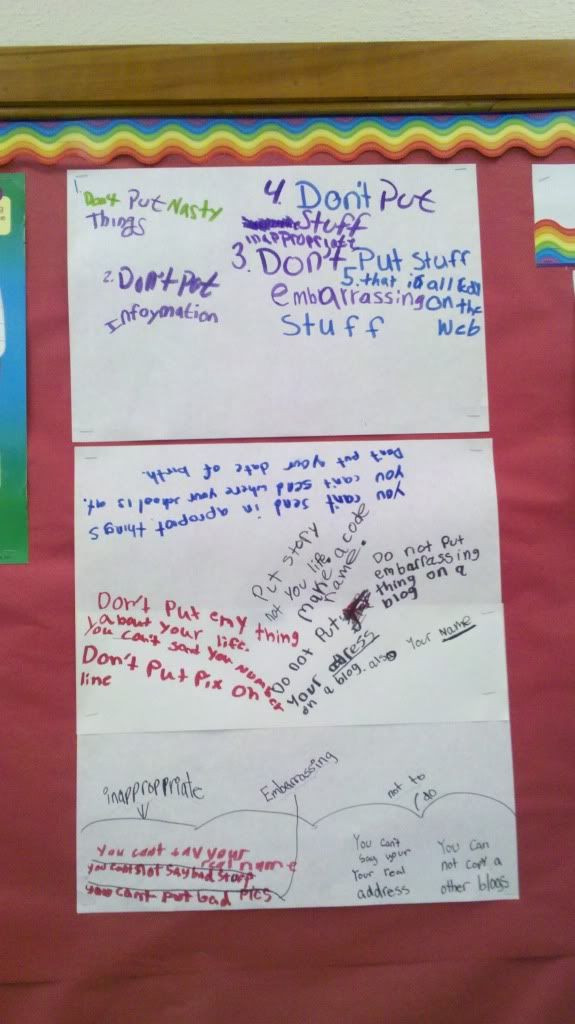 1.
Don't Put Nasty
Things
2. Don't put
Information
4. Don't Put
Stuff
inappropriate
3. Don't Put Stuff
embarrassing
Stuff
5. that is all
on the
Web
you can't send in apropiot things
you can't send where your school is at.
Don't put your date of birth.
Put story
not you life.
make a code
name.
Do not Put
embarrassing
thing on a
blog
Do not Put
Your adress
on a blog. also
Your Name
Don't Put eny thing
about your life.
You can't send you number
Don't Put Pix on
line
inapproppriate
Embarrassing
not to
do
You cant say your
real name
you cant not say bad
you cant put bad Pics
You can't
say your
Your real
address
You can
not copy a
other blogs